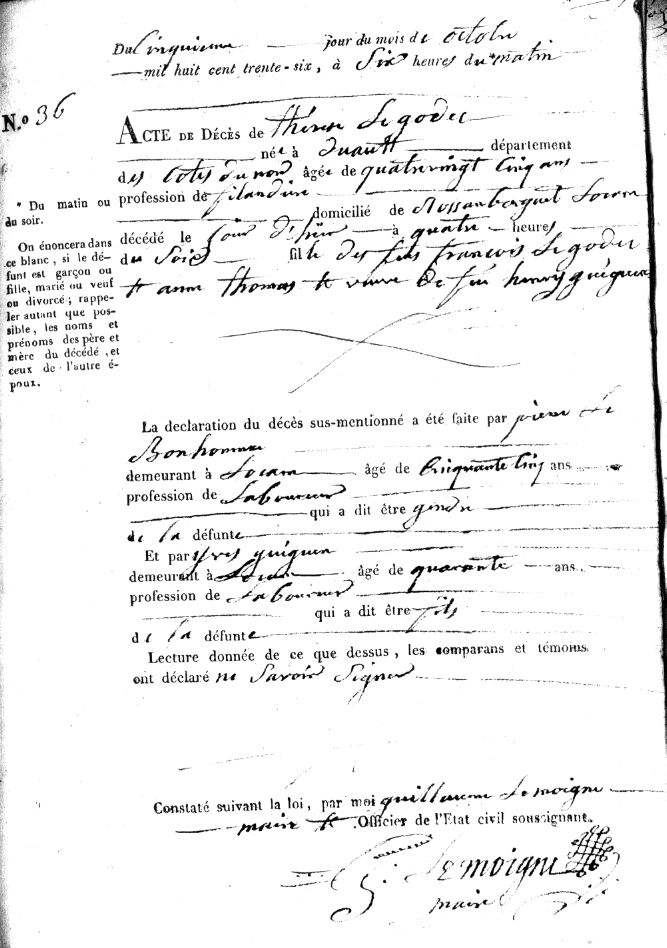 Du Cinquieme jour du mois de octobre
mil huit cent trente-six, à Six heures du * matin
N.º 36
ACTE DE DÉCÈS de thérese Le godec
née à duault département
des Cotes du nord âgée de quatrevingt Cinq ans
profession de filandiere
domicilié de Rossanbocquet Locarn
décédé le jour d'hier à quatre heures
du Soir fille des feus francois Le godec
et anne thomas et veuve de feu henry guéguen
* Du matin ou
du soir.
On énoncera dans
ce blanc, si le dé-
funt est garçon ou
fille, marié ou veuf
ou divorcé; rappe-
ler autant que pos-
sible, les noms et
prénoms des père et
mère du décédé, et
ceux de l'autre é-
poux.
La declaration du décès sus-mentionné a été faite par pierre Le
Bonhomme
demeurant à Locarn âgé de Cinquante Cinq ans
profession de Laboureur
qui a dit être gendre
de la défunte
Et par yves guéguen
demeurant à Locarn âgé de quarante ans.
profession de Laboureur
qui a dit être fils
de la défunte
Lecture donnée de ce que dessus, les comparans et témoins
ont déclaré ne Savoir Signer
Constaté suivant la loi, par moi guillaume Le moigne
maire et Officier de l'Etat civil soussignant.
G. Le moigne
maire